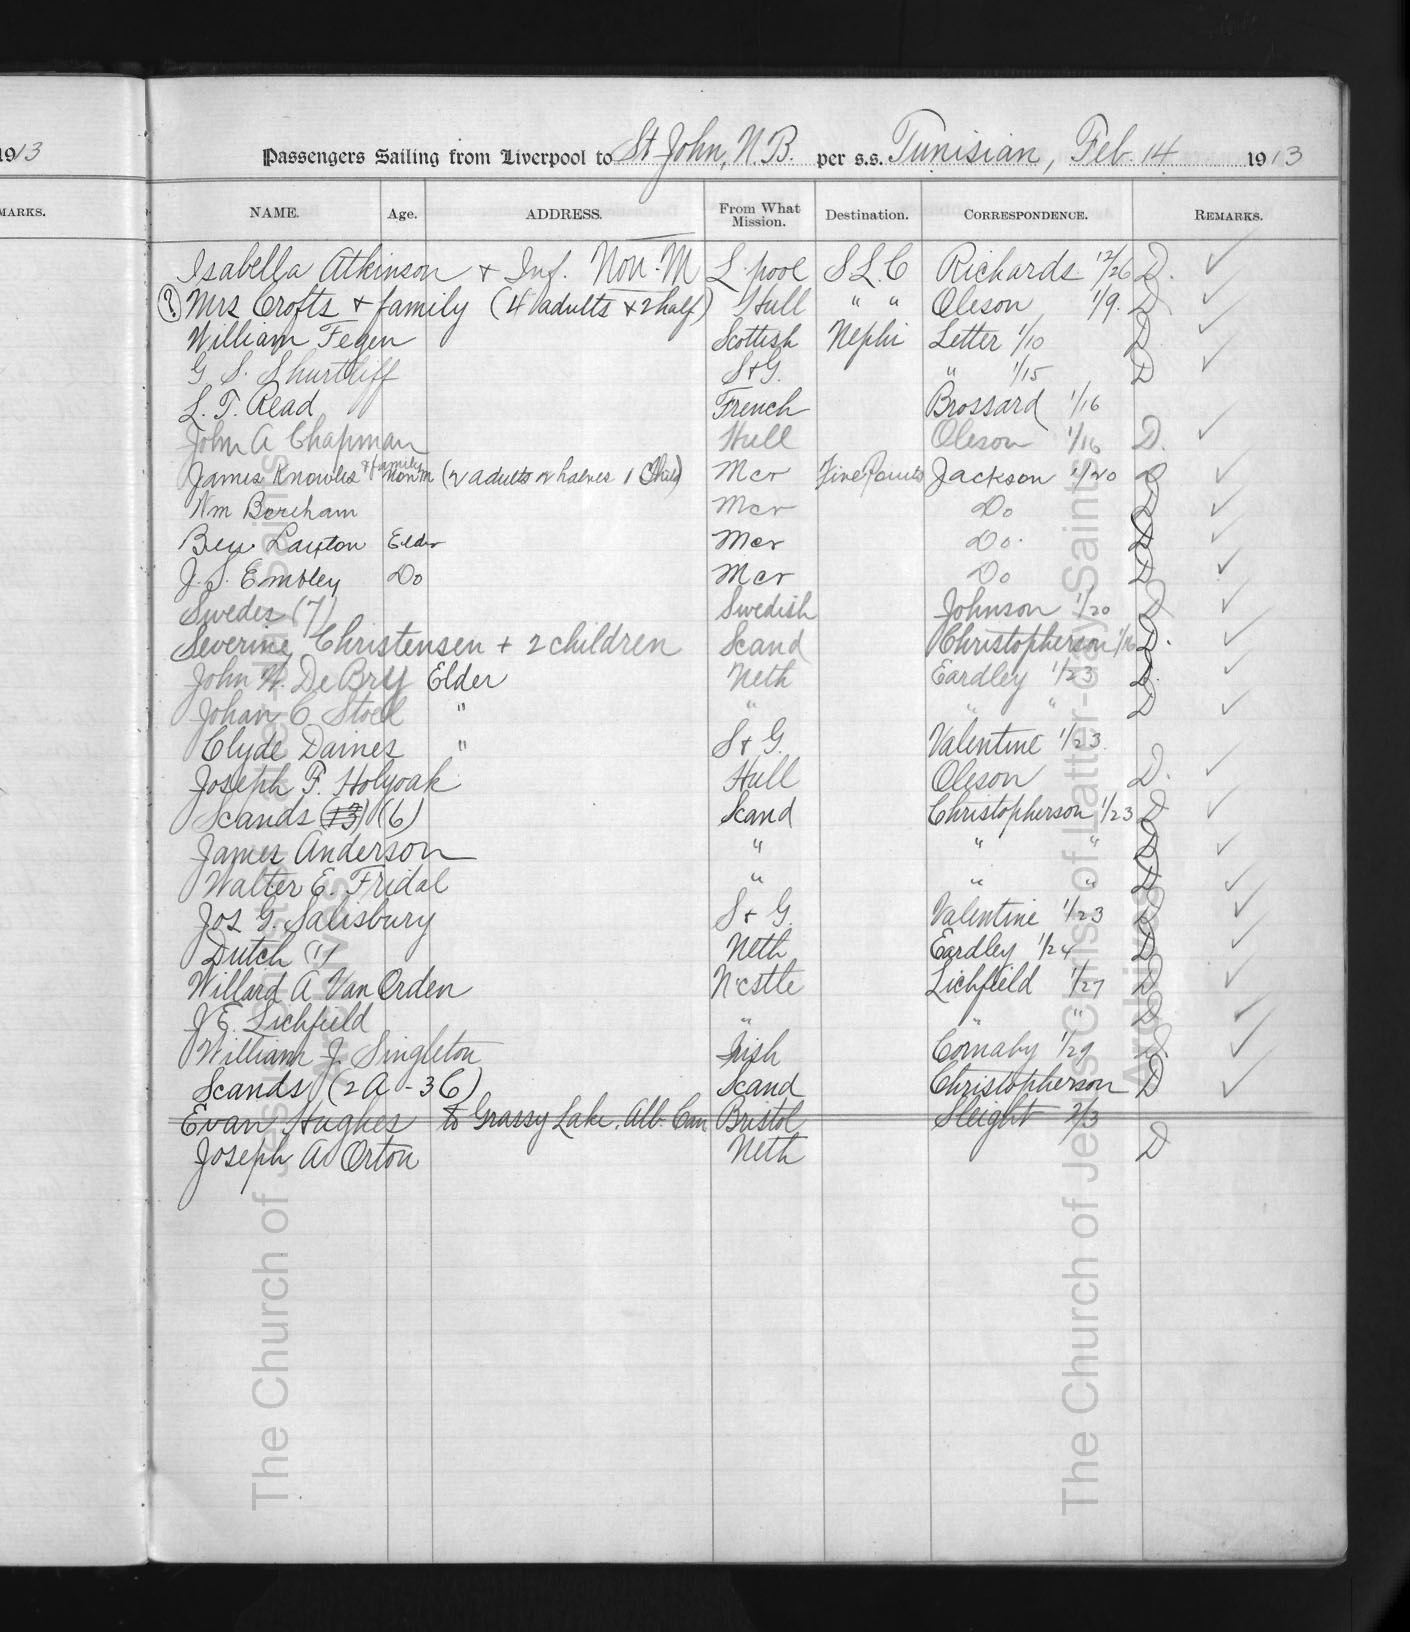 1913
MARKS.
Passengers Sailing from Liverpool to St John, N.B. per s.s. Tunisian, Feb. 14 1913
NAME. Age. ADDRESS. From What Mission. Destination. CORRESPONDENCE. REMARKS.
Isabella Atkinson + Inf. Non-M L'pool S L C Richards 12/26 D. ✓
(?) Mrs Crofts + family (4 adults + 2 half) Hull " " Oleson 1/9. D ✓
William Fegen Scottish Nephi Letter 1/10 D. ✓
G S. Shurtliff S+G. " 1/15 D ✓
L. T. Read French Brossard 1/16
John A Chapman Hull Oleson 1/16 D. ✓
James Knowles + family non m (2 adults 2 halves 1 Child) Mcr Five Points Jackson 1/20 D ✓
Wm Bereham Mcr Do D ✓
Laxton Elder Mcr Do. D ✓
J. S. Embley Do Mcr Do D ✓
Swedes (7) Swedish Johnson 1/20 D ✓
Severine Christensen + 2 children Scand Christopherson 1/16 D. ✓
John H. DeBry Elder Neth Eardley 1/23 D. ✓
Johan C Stoel " " " " D ✓
Clyde Daines " S+G. Valentine 1/23.
Joseph F. Holyoak Hull Oleson D. ✓
Scands (13) (6) Scand Christopherson 1/23 D ✓
James Anderson " " " D ✓
Walter E. Fridal " " " D ✓
Jos G. Salisbury S+G. Valentine 1/23 D ✓
Dutch (1) Neth Eardley 1/24 D ✓
Willard A Van Orden N'cstle Lichfield 1/27 D ✓
J E. Lichfield " " D ✓
William J. Singleton Irish Cornaby 1/29 D. ✓
Scands (2A - 3C) Scand Christopherson D ✓
Evan Hughes to Grassy Lake, Alb. Can Bristol Sleight 2/3
Joseph A Orton Neth D
The Church of Jesus Christ of Latter-day Saints
Archives
The Church of Jesus Christ of Latter-day Saints
Archives